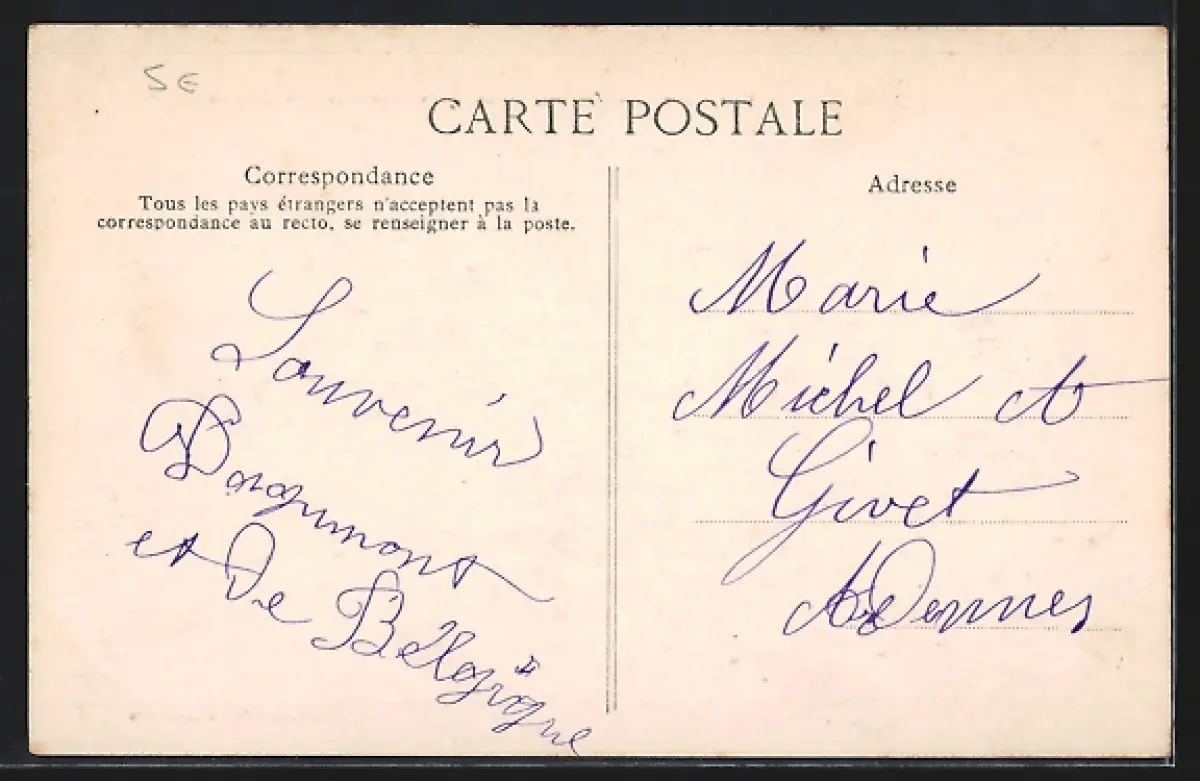 5 €
CARTE POSTALE
Correspondance
Tous les pays étrangers n'acceptent pas la
correspondance au recto, se renseigner à la poste.
Souvenir
et De Bellgique
Adresse
Marie
Michel A
Givet
Ardennes